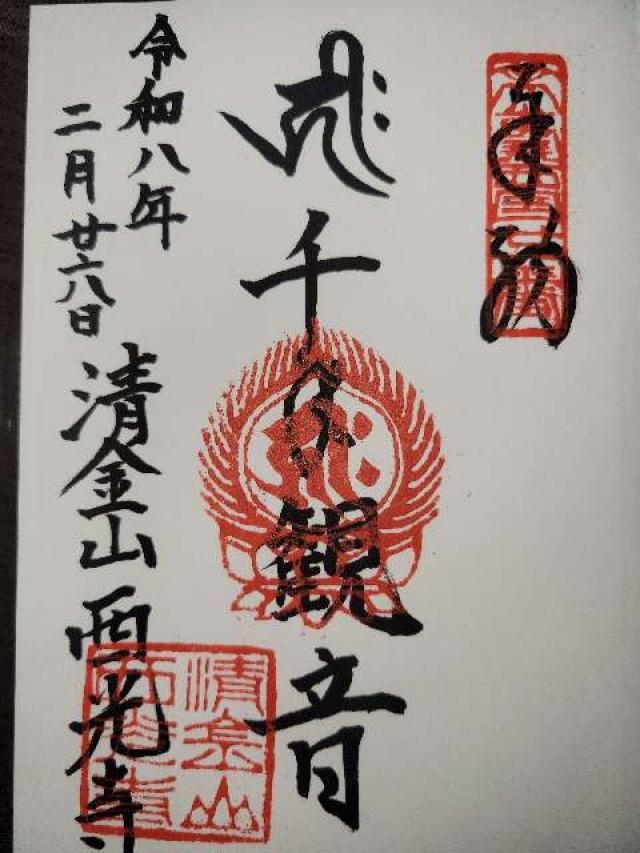 奉拝
千手観音
令和八年
二月廿六日
清金山西光寺
清金山
西光寺